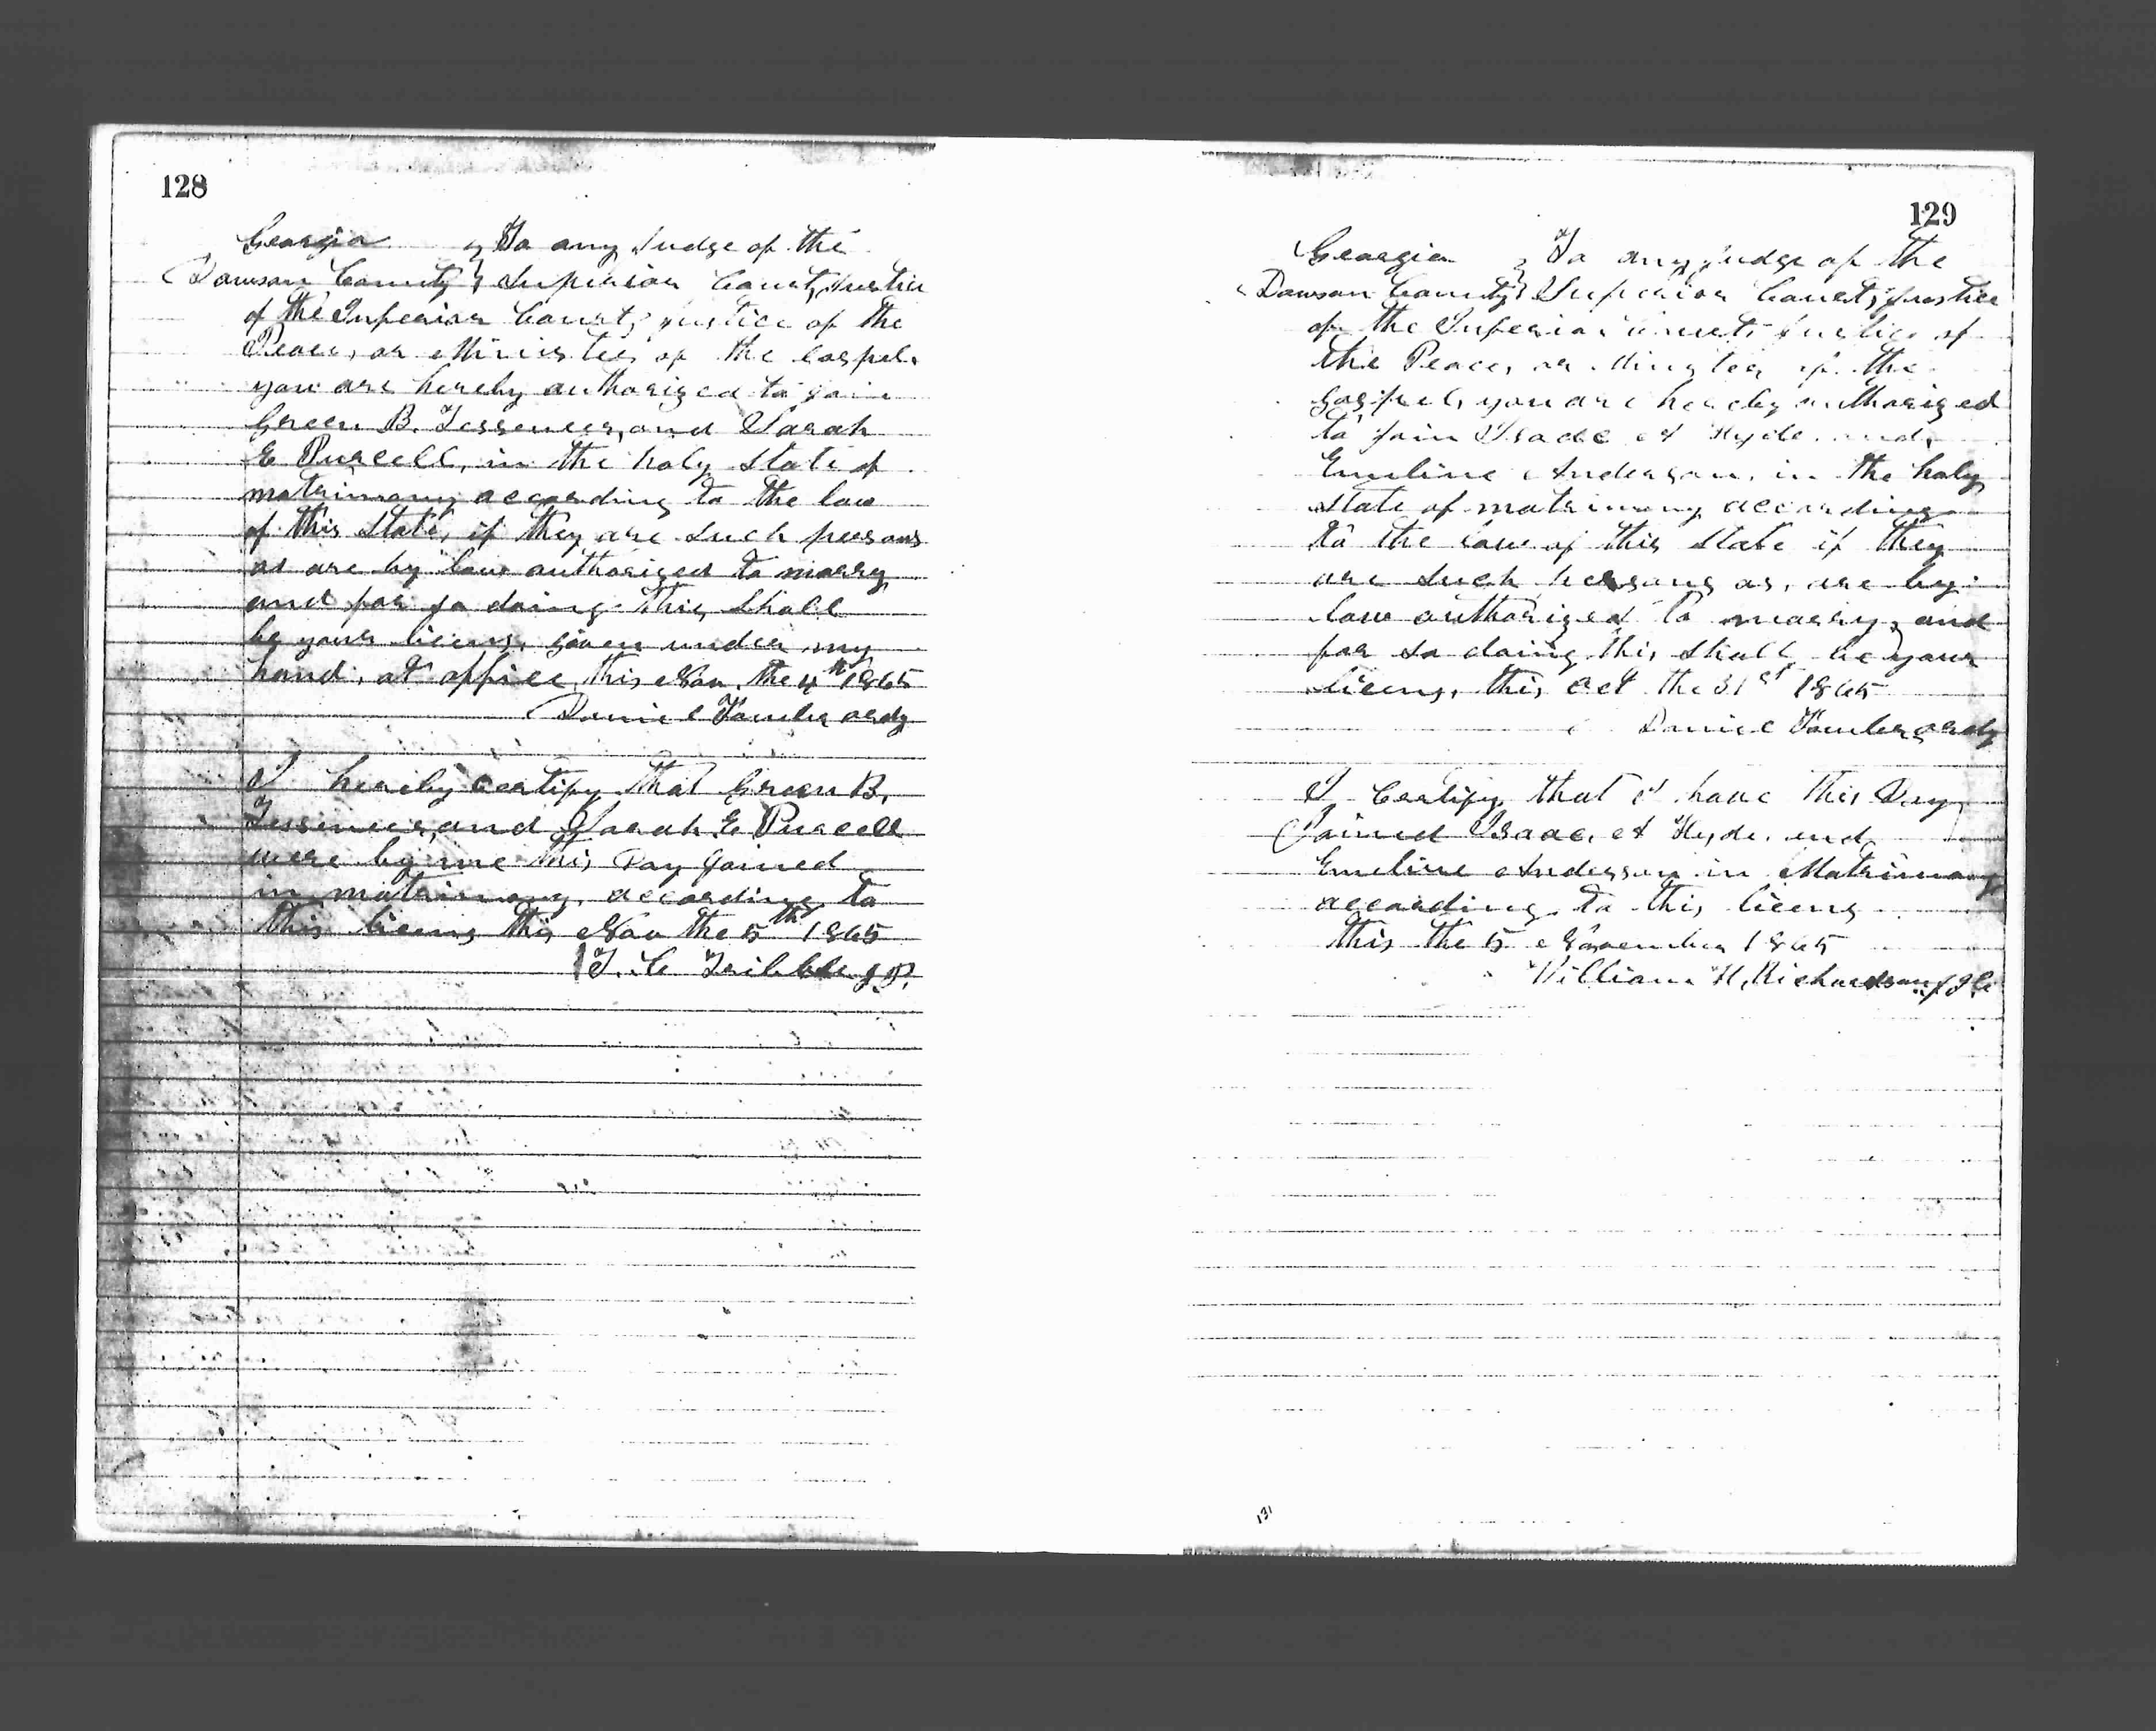 128
Georgia } To any Judge of the
Dawson County } Superior Court, Justice
of the Inferior Court, justice of the
Peace, or Minister of the Gospel.
you are hereby authorized to join
Green B. and Sarah
E Purcell, in the holy State of
matrimony according to the law
of this State, if they are Such persons
as are by law authorized to marry
and for so doing this Shall
be your licens, given under my
hand, at office, this Nov. the 4th 1865
Daniel Fowler ordy
I hereby certify that Green B.
and Sarah E Purcell
were by me this Day joined
in matrimony, according to
this licens this Nov the 5th 1865
J. P.
129
Georgia } To any judge of the
Dawson County } Superior Court, justice
of the Inferior Court, Justice of
the Peace, or of the
gospel, you are hereby authorized
to join Isaac A Hyde. and
Emeline Anderson, in the holy
State of matrimony according
to the law of this State if they
are Such persons as, are by
law authorized to marry, and
for So doing this Shall be your
licens, this Oct the 31st 1865
Daniel Fowler ordy
I Certify that I have this Day
Joined Isaac A Hyde. and
Emeline Anderson in Matrimony
according to this licens
this the 5 November 1865
William H. Richardson
131